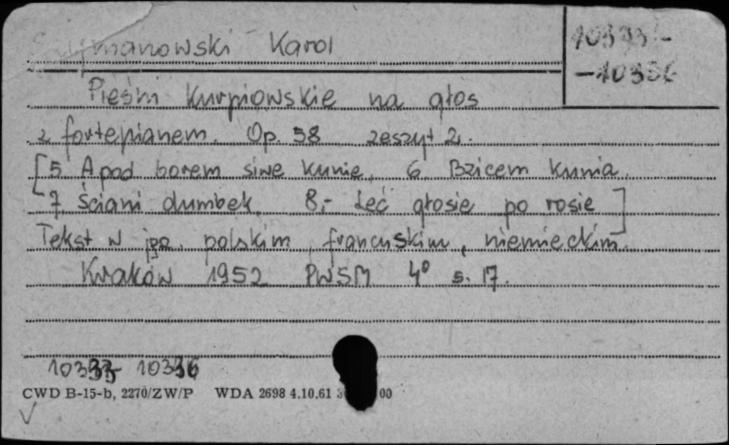 Szymanowski Karol
10333-
-10336
Pieśni Kurpiowskie na głos
z fortepianem. Op. 58 zeszyt 2.
[5 A pod borem siwe kunie, 6 Bzicem kunia
7 Ściani dumbek, 8,- Leć głosie po rosie]
Tekst w jęz. polskim, francuskim, niemieckim.
Kraków 1952 PWSM 4° s. 17.
10333- 10336
CWD B-15-b, 2270/ZW/P WDA 2698 4.10.61 00